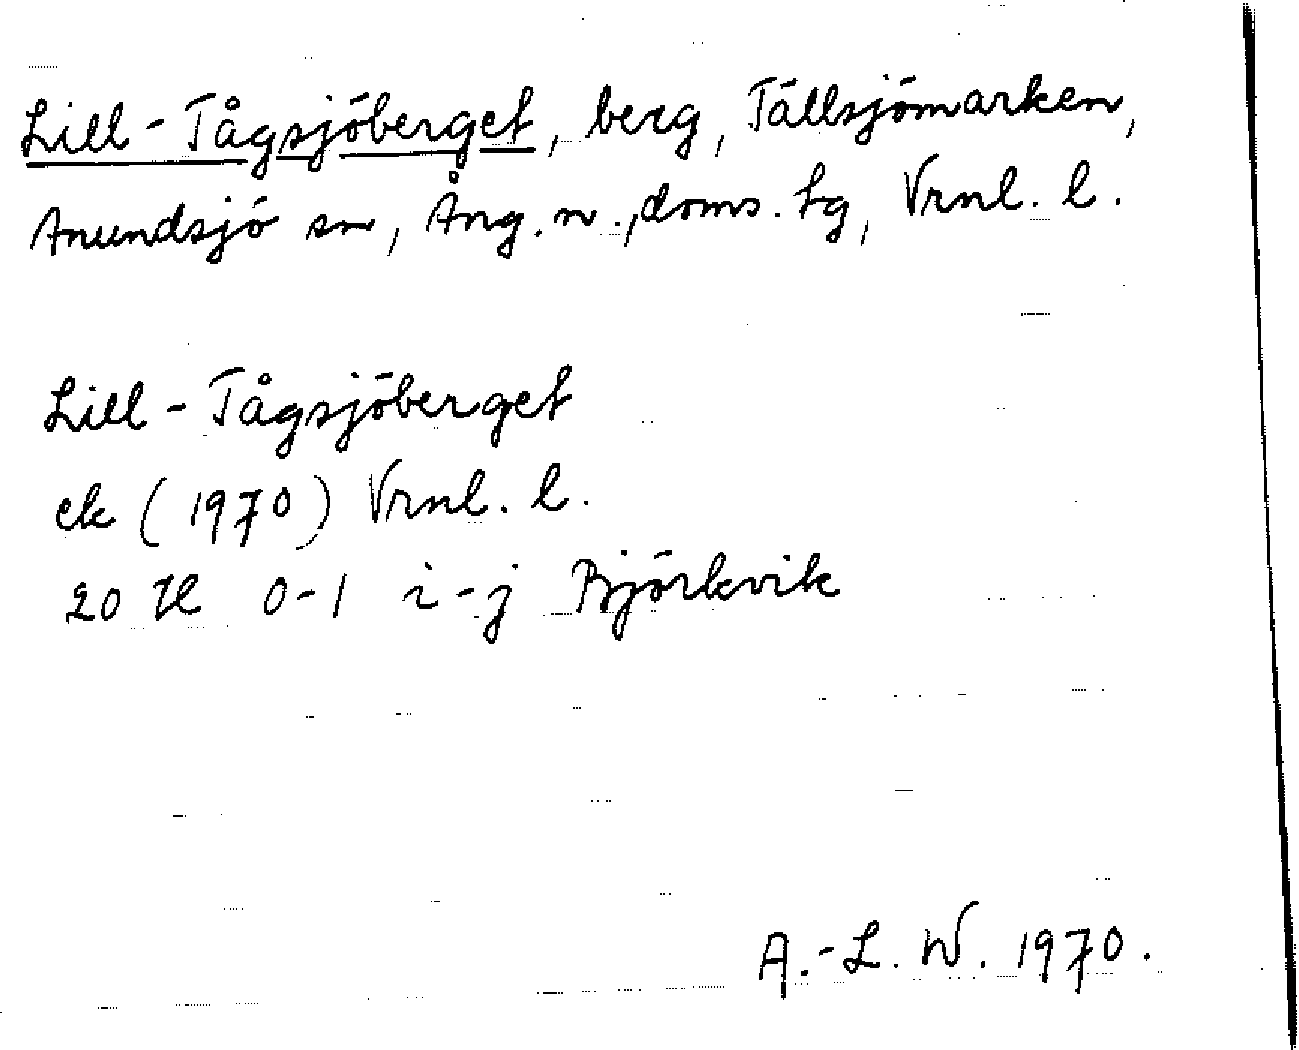 Lill-Tågsjöberget, berg, Tällsjömarken,
Anundsjö sn, Ång. n., doms. tg, Vrnl. l.
Lill-Tågsjöberget
ek (1970) Vrnl. l.
20 H 0-1 i-j Björkvik
A.-L. W. 1970.